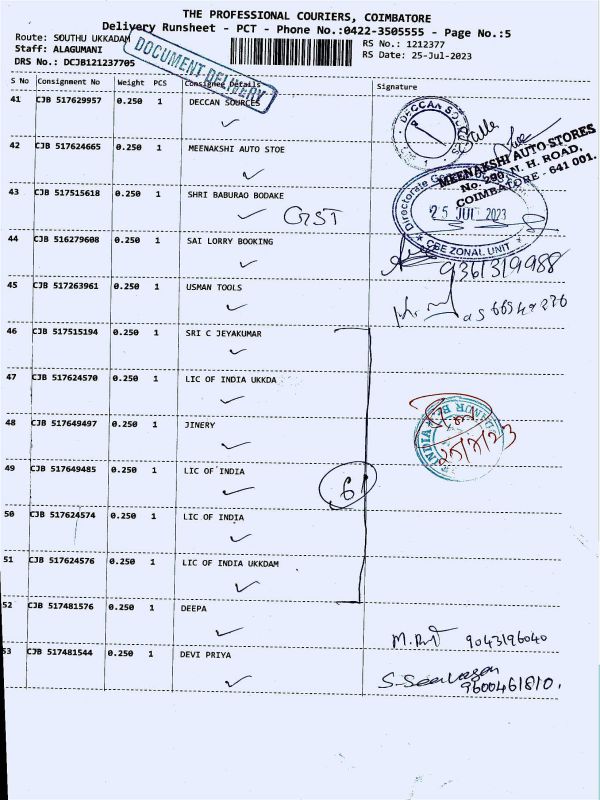 THE PROFESSIONAL COURIERS, COIMBATORE
Delivery Runsheet - PCT - Phone No.:0422-3505555 - Page No.:5
Route: SOUTHU UKKADAM
RS No.: 1212377
Staff: ALAGUMANI
RS Date: 25-Jul-2023
DRS No.: DCJB121237705
DOCUMENT DELIVERY
S No Consignment No Weight PCS Consignee Details Signature
41 CJB 517629957 0.250 1 DECCAN SOURCES
DECCAN SOURCES
42 CJB 517624665 0.250 1 MEENAKSHI AUTO STOE
MEENAKSHI AUTO STORES
No. 290, N. H. ROAD,
COIMBATORE - 641 001.
43 CJB 517515618 0.250 1 SHRI BABURAO BODAKE
GST
Directorate
25 JUL 2023
CBE ZONAL UNIT
44 CJB 516279608 0.250 1 SAI LORRY BOOKING
9361319988
45 CJB 517263961 0.250 1 USMAN TOOLS
46 CJB 517515194 0.250 1 SRI C JEYAKUMAR
47 CJB 517624570 0.250 1 LIC OF INDIA UKKDA
48 CJB 517649497 0.250 1 JINERY
INDIA
25/7/23
49 CJB 517649485 0.250 1 LIC OF INDIA
6
50 CJB 517624574 0.250 1 LIC OF INDIA
51 CJB 517624576 0.250 1 LIC OF INDIA UKKDAM
52 CJB 517481576 0.250 1 DEEPA
9043196040
53 CJB 517481544 0.250 1 DEVI PRIYA
9600461810.